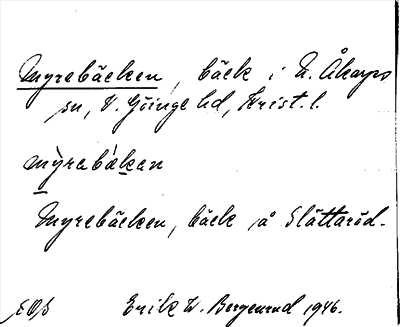 Myrebäcken, bäck i N. Åkarps
sn, V. Göinge hd, Krist. l.
my̆rabäkan
Myrebäcken, bäck å Slättaröd.
Erik W. Bergenrud 1946.